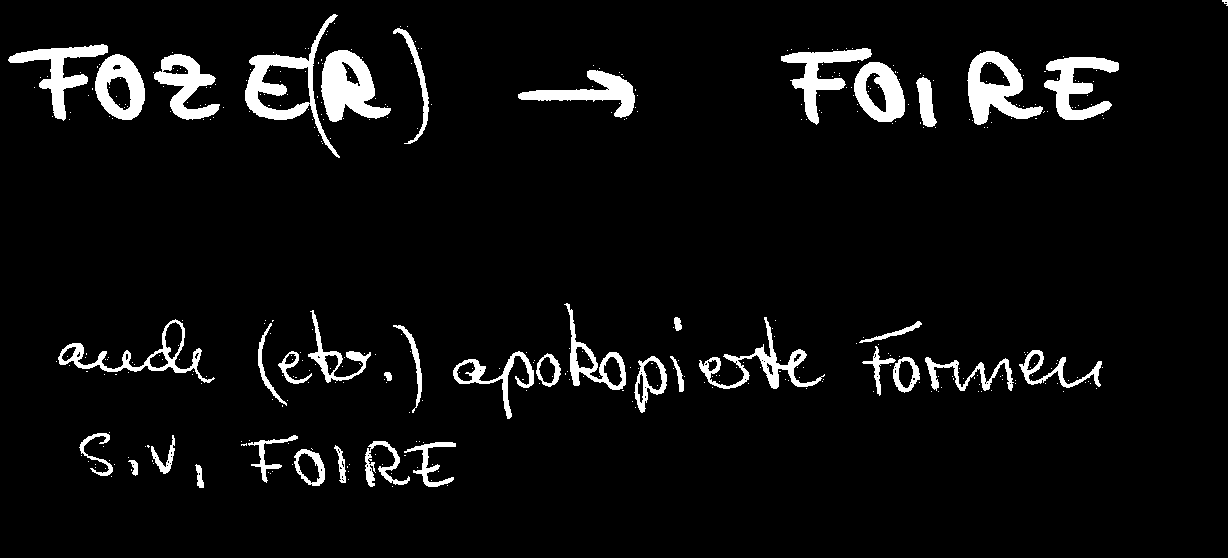 FOZE(R) → FOIRE
auch (etr.) apokopierte Formen
s.v. FOIRE